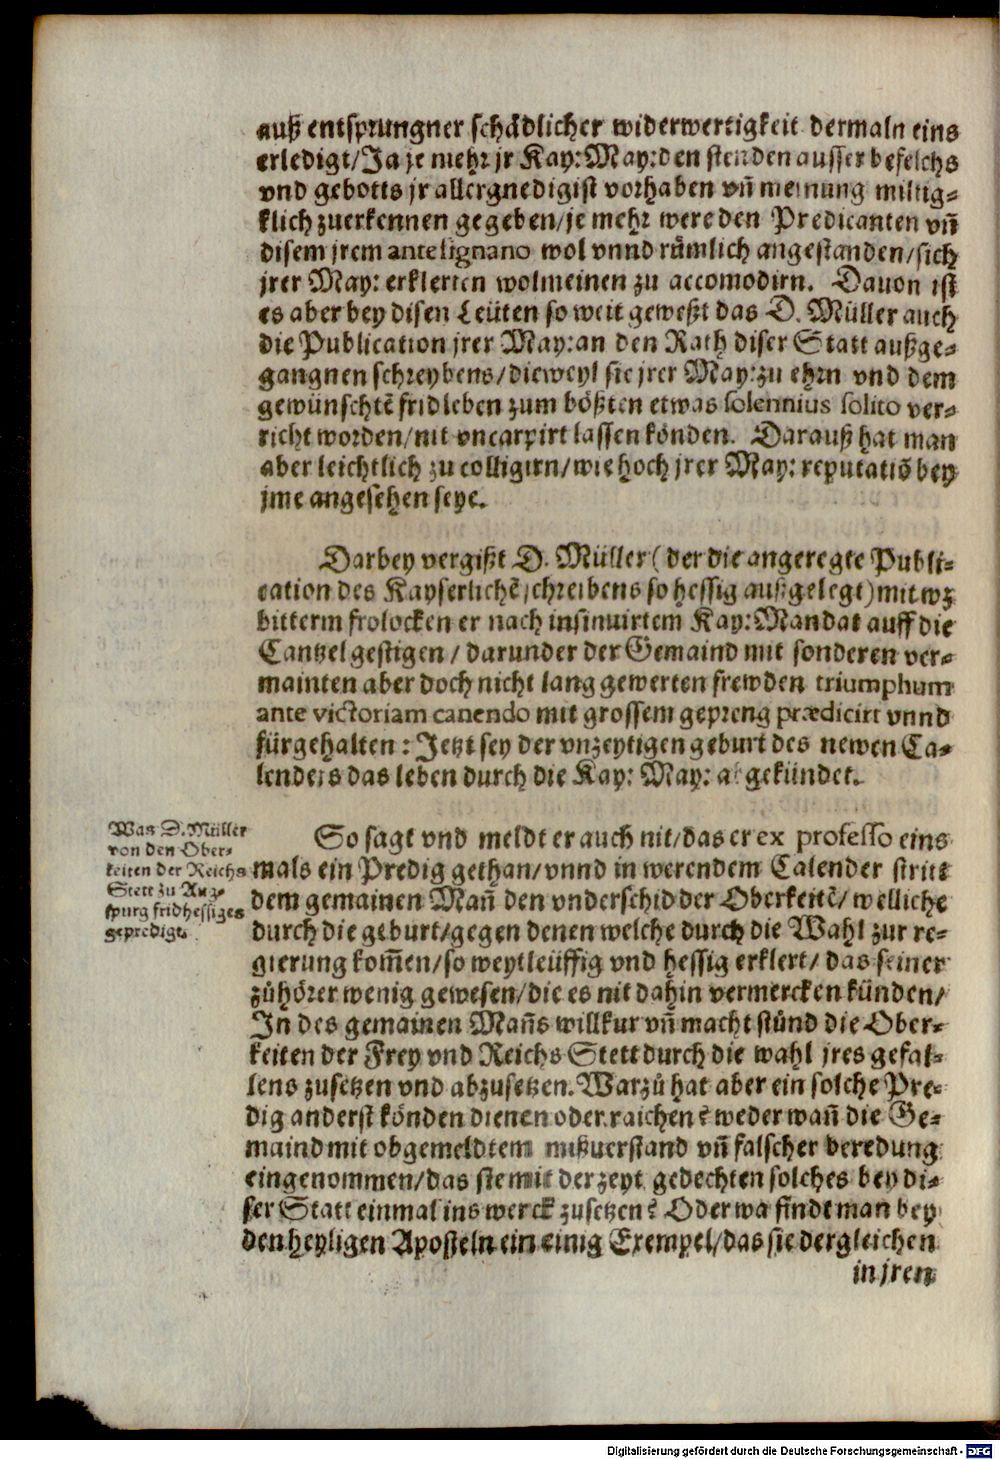 auß entsprungner schädlicher widerwertigkeit dermaln eins
erledigt/Ja je mehr jr Kay:May:den stenden ausser befelchs
vnd gebotts jr allergnedigist vorhaben vñ meinung miltig-
klich zuerkennen gegeben/je mehr were den Predicanten vñ
disem jrem antesignano wol vnnd růmlich angestanden/sich
jrer May: erklerten wolmeinen zu accomodirn. Dauon ist
es aber bey disen Leüten so weit geweßt das D. Müller auch
die Publication jrer May:an den Rath diser Statt außge-
gangnen schreybens/dieweyl sie jrer May:zu ehrn vnd dem
gewünschtē fridleben zum bößten etwas solennius solito ver-
richt worden/nit vncarpirt lassen könden. Darauß hat man
aber leichtlich zu colligirn/wie hoch jrer May: reputatiō bey
jme angesehen seye.
Darbey vergißt D. Müller ( der die angeregte Publi-
cation des Kayserlichē schreibens so hessig außgelegt) mit wz
bitterm frolocken er nach insinuirtem Kay:Mandat auff die
Cantzel gestigen / darunder der Gemaind mit sonderen ver-
mainten aber doch nicht lang gewerten frewden triumphum
ante victoriam canendo mit grossem gepreng prædicirt vnnd
fürgehalten : Jetzt sey der vnzeytigen geburt des newen Ca-
lenders das leben durch die Kay: May: abgekündet.
Was D. Müller
von den Ober-
keiten der Reichs
Stett zu Aug-
spurg fridhessiges
gepredigt.
So sagt vnd meldt er auch nit/das er ex professo eins
mals ein Predig gethan/vnnd in werendem Calender stritt
dem gemainen Mañ den vnderschid der Oberkeitē/ welliche
durch die geburt/gegen denen welche durch die Wahl zur re-
gierung kom̃en/so weytleüffig vnd hessig erklert/ das seiner
zůhörer wenig gewesen/die es nit dahin vermercken künden/
In des gemainen Mañs willkur vñ macht stünd die Ober-
keiten der Frey vnd Reichs Stett durch die wahl jres gefal-
lens zusetzen vnd abzusetzen. Warzů hat aber ein solche Pre-
dig anderst könden dienen oder raichen? weder wañ die Ge-
maind mit obgemeldtem mißuerstand vñ falscher beredung
eingenommen/das sie mit der zeyt gedechten solches bey di-
ser Statt einmal ins werck zusetzen? Oder wa findt man bey
den heyligen Aposteln ein einig Exempel/das sie dergleichen
in jren
Digitalisierung gefördert durch die Deutsche Forschungsgemeinschaft - DFG